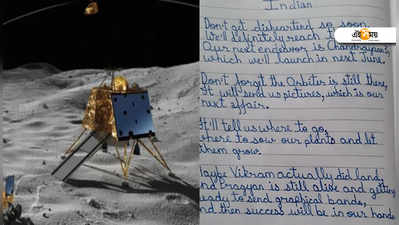 Indian
Don't get disheartened so soon,
We'll definitely reach
Our next endeavor is Chandrayaan
which we'll launch in next June.
Don't forget the Orbiter is still there,
It will send us pictures, which is our
next affair.
It'll tell us where to go,
where to sow our plants and let
them grow.
Maybe Vikram actually did land,
And Pragyan is still alive and getting
ready to send graphical bands,
And then success will be in our hands
এই সময়